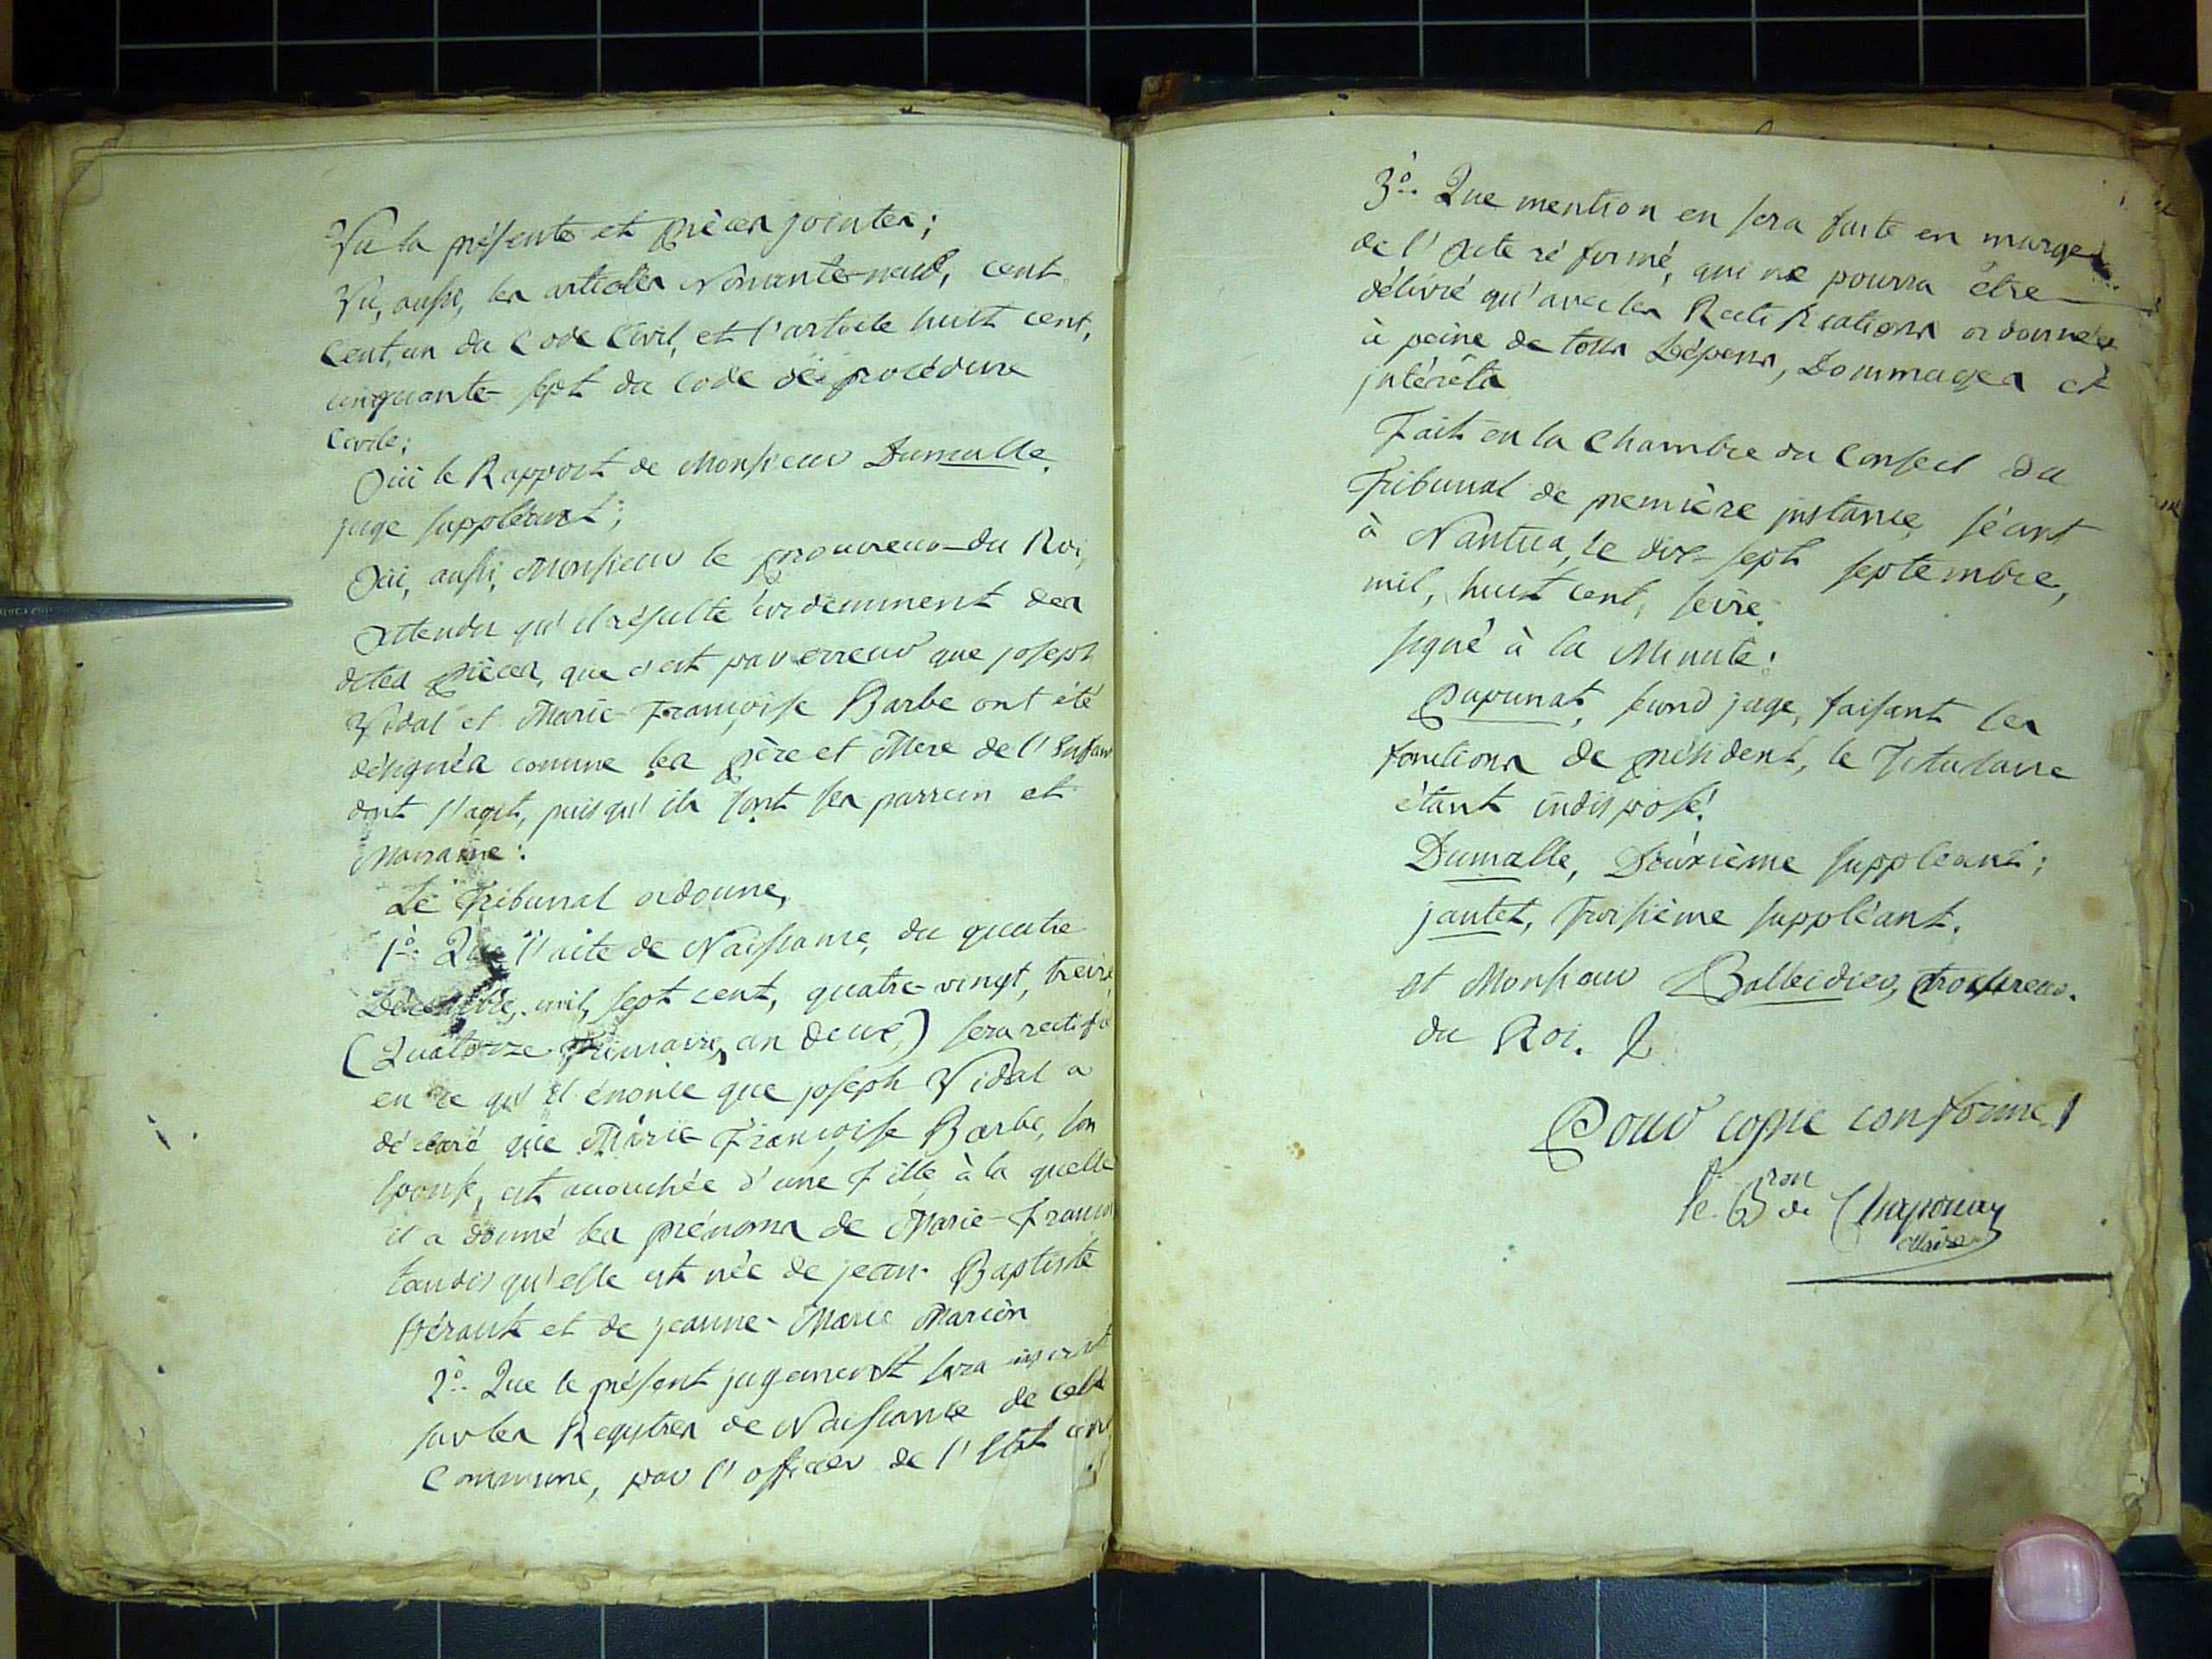 Vu la présente et pièces jointes;
Vu, aussi, les articles Nonante-neuf, cent,
Cent, un du Code Civil, et l'article huit cent,
cinquante-sept du Code de procédure
Civile;
Oüi le Rapport de Monsieur Dumalle,
juge suppléant;
Oüi, aussi, Monsieur le procureur du Roi,
Attendu qu'il résulte évidemment des
dites pièces, que c'est par erreur que joseph
Vidal et Marie-Françoise Barbe ont été
désignés comme les père et Mere de l'Enfan
dont s'agit, puis qu'ils sont ses parrein et
Marraine:
Le Tribunal ordonne,
1°. Que l'acte de Naissance, du quatre
Décembre, mil, sept cent, quatre-vingt, treize
(Quatorze frimaire, an deux,) sera rectifié
en ce qu'il énonce que joseph Vidal a
déclaré que Marie-Françoise Barbe, son
Epouse, est accouchée d'une Fille à la quelle
il a donné les prénoms de Marie-Franco
tandis qu'elle est née de jean-Baptiste
et de jeanne-Marie Marion
2°. Que le présent jugement sera inscrit
sur les Registres de Naissance de cette
Commune, par l'officier de l'Etat civil
3°. Que mention en sera faite en marge
de l'Acte réformé, qui ne pourra être
délivré qu'avec les Rectifications ordonnées
à peine de tous Dépens, Dommages et
jntérêts
Fait en la Chambre du Conseil du
Tribunal de première jnstance, séant
à Nantua, le dix-sept septembre,
mil, huit cent, seize.
signé à la Minute:
Papunat, second juge, faisant les
fonctions de président, le Titulaire
étant indisposé!
Dumalle, Deuxième suppléant;
jantet, Troisième suppléant.
et Monsieur Balleidier, Procureur.
du Roi.
Pour copie conforme
le Bron de Chaponay
Maire